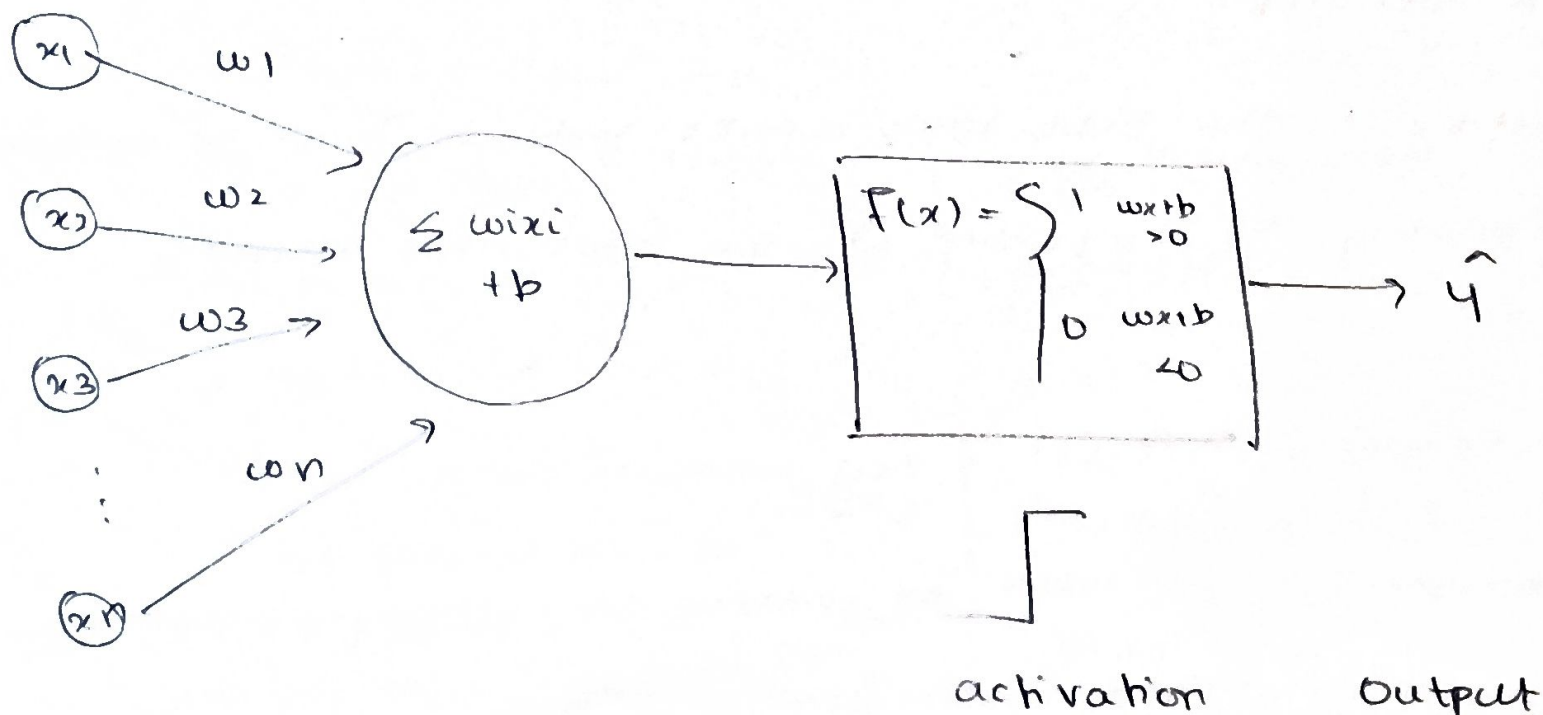 x1
w1
x2
w2
x3
w3
⋮
xn
wn
Σ wixi
+b
F(x) = { 1 wx+b
>0
0 wx+b
<0
ŷ
activation
output